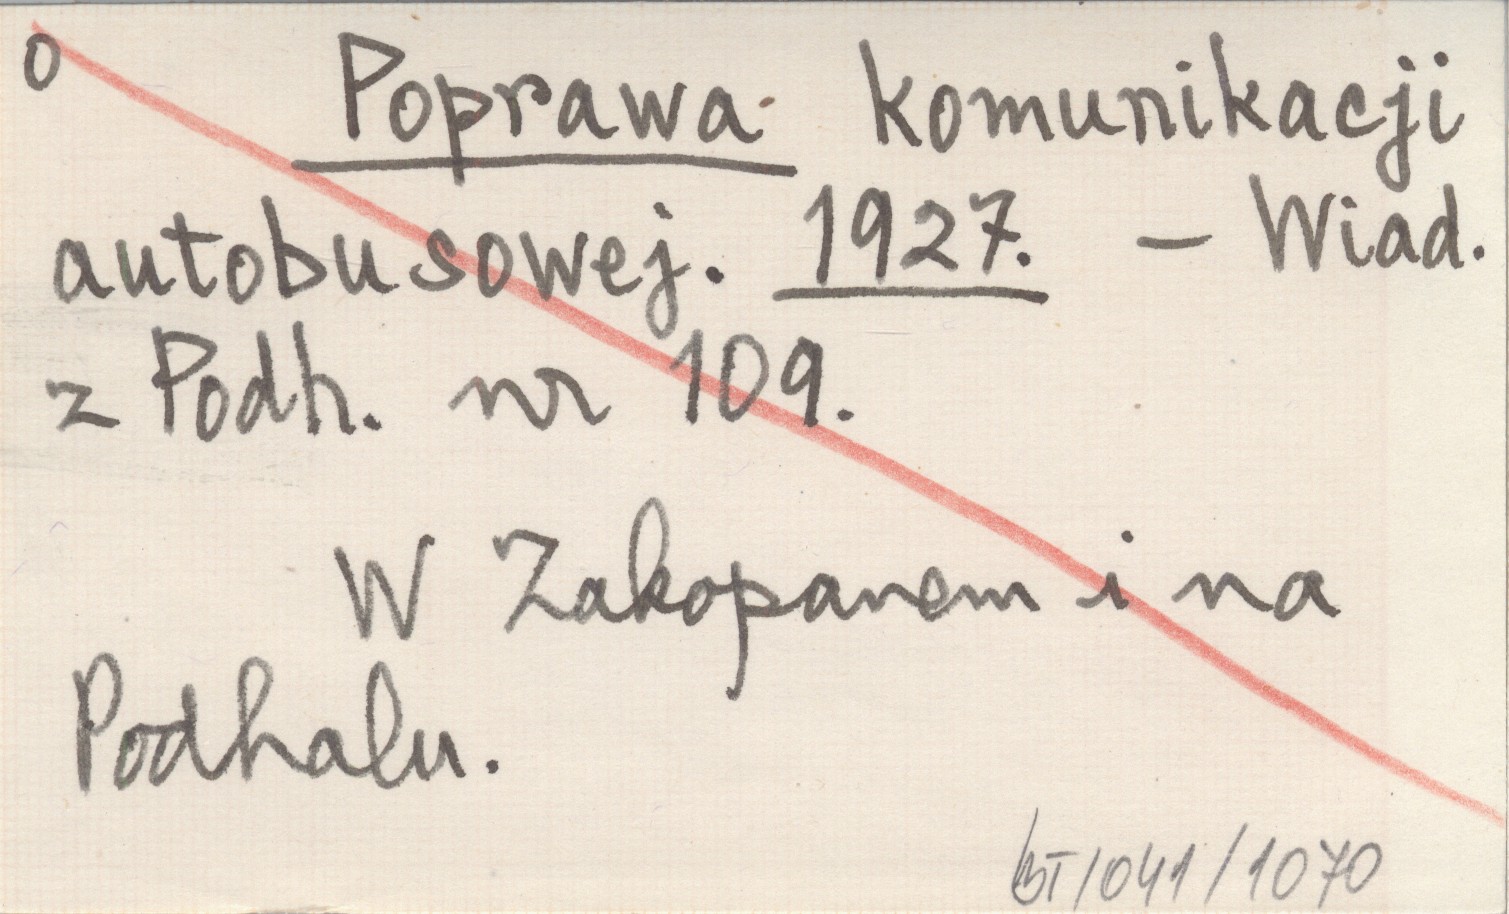 o Poprawa komunikacji
autobusowej. 1927. – Wiad.
z Podh. nr 109.
W Zakopanem i na
Podhalu.
BT/041/1070